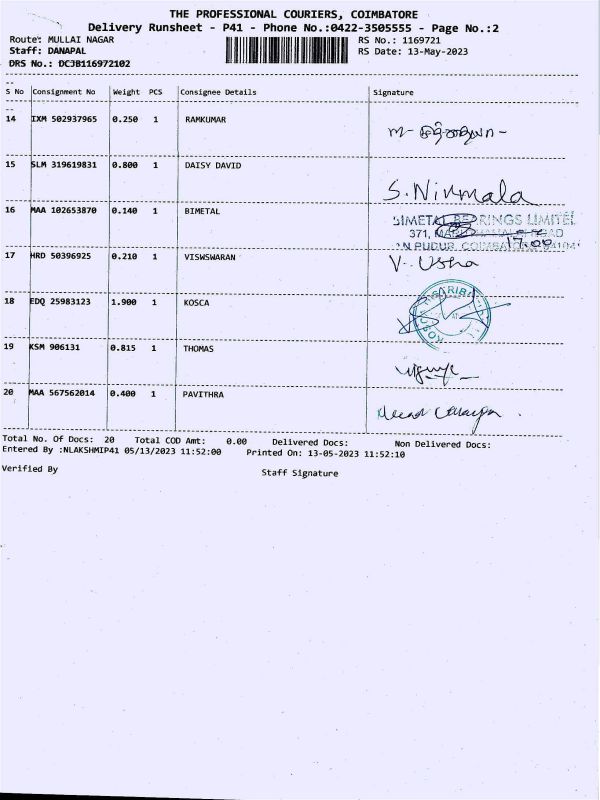 THE PROFESSIONAL COURIERS, COIMBATORE
Delivery Runsheet - P41 - Phone No.:0422-3505555 - Page No.:2
Route: MULLAI NAGAR RS No.: 1169721
Staff: DANAPAL RS Date: 13-May-2023
DRS No.: DCJB116972102
S No Consignment No Weight PCS Consignee Details Signature
14 IXM 502937965 0.250 1 RAMKUMAR
15 SLM 319619831 0.800 1 DAISY DAVID S. Nirmala
16 MAA 102653870 0.140 1 BIMETAL BIMETAL BEARINGS LIMITED
371,
17 HRD 50396925 0.210 1 VISWSWARAN V. Usha
18 EDQ 25983123 1.900 1 KOSCA
19 KSM 906131 0.815 1 THOMAS
20 MAA 567562014 0.400 1 PAVITHRA
Total No. Of Docs: 20 Total COD Amt: 0.00 Delivered Docs: Non Delivered Docs:
Entered By :NLAKSHMIP41 05/13/2023 11:52:00 Printed On: 13-05-2023 11:52:10
Verified By Staff Signature